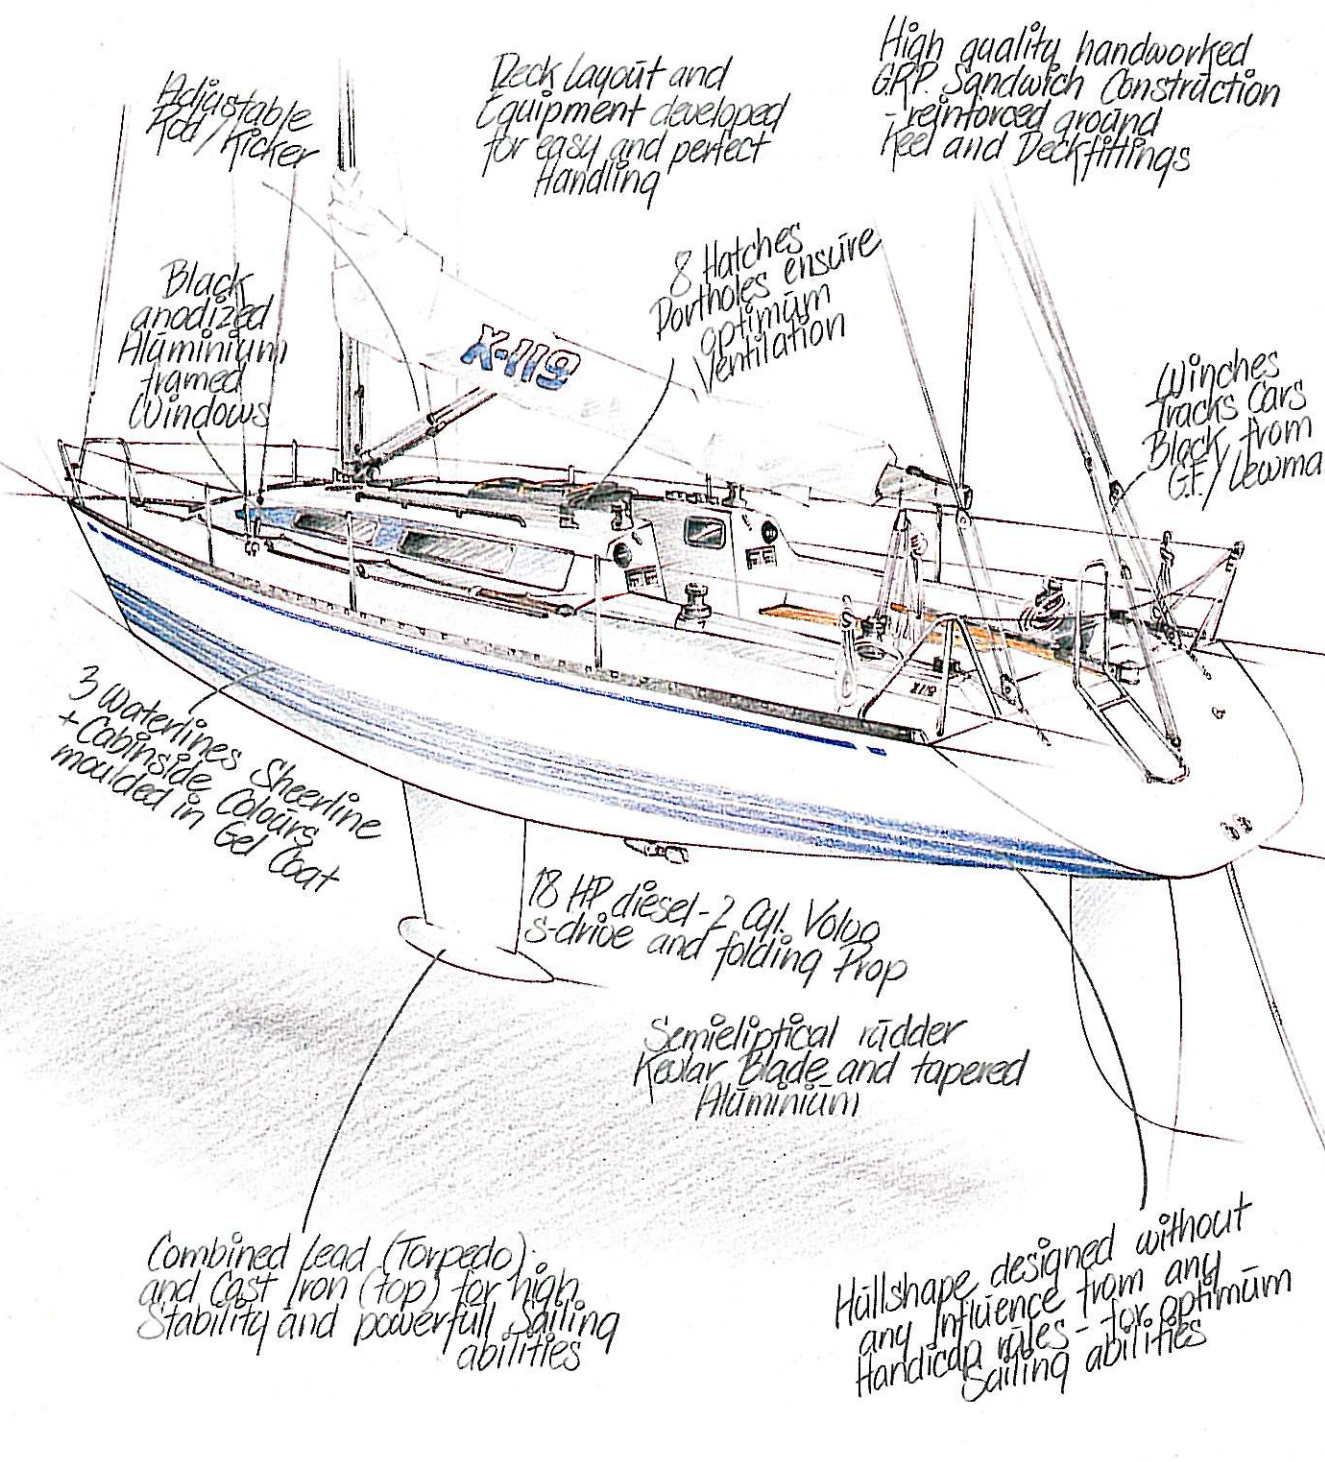 Adjustable
Rod/Kicker
Deck Layout and
Equipment developed
for easy and perfect
Handling
High quality handworked
GRP. Sandwich Construction
- reinforced ground
Keel and Deckfittings
Black
anodized
Aluminium
framed
Windows
8 Hatches
Portholes ensure
optimum
Ventilation
X-119
Winches
Tracks Cars
Black from
G.F./Lewma
X-119
3 Waterlines Sheerline
+ Cabinside Colours
moulded in Gel Coat
18 HP diesel-2 Cyl. Volvo
s-drive and folding Prop
Semieliptical rudder
Kevlar Blade and tapered
Aluminium
Combined Lead (Torpedo)
and Cast Iron (top) for high
Stability and powerfull Sailing
abilities
Hullshape designed without
any Influence from any
Handicap rules - for optimum
Sailing abilities